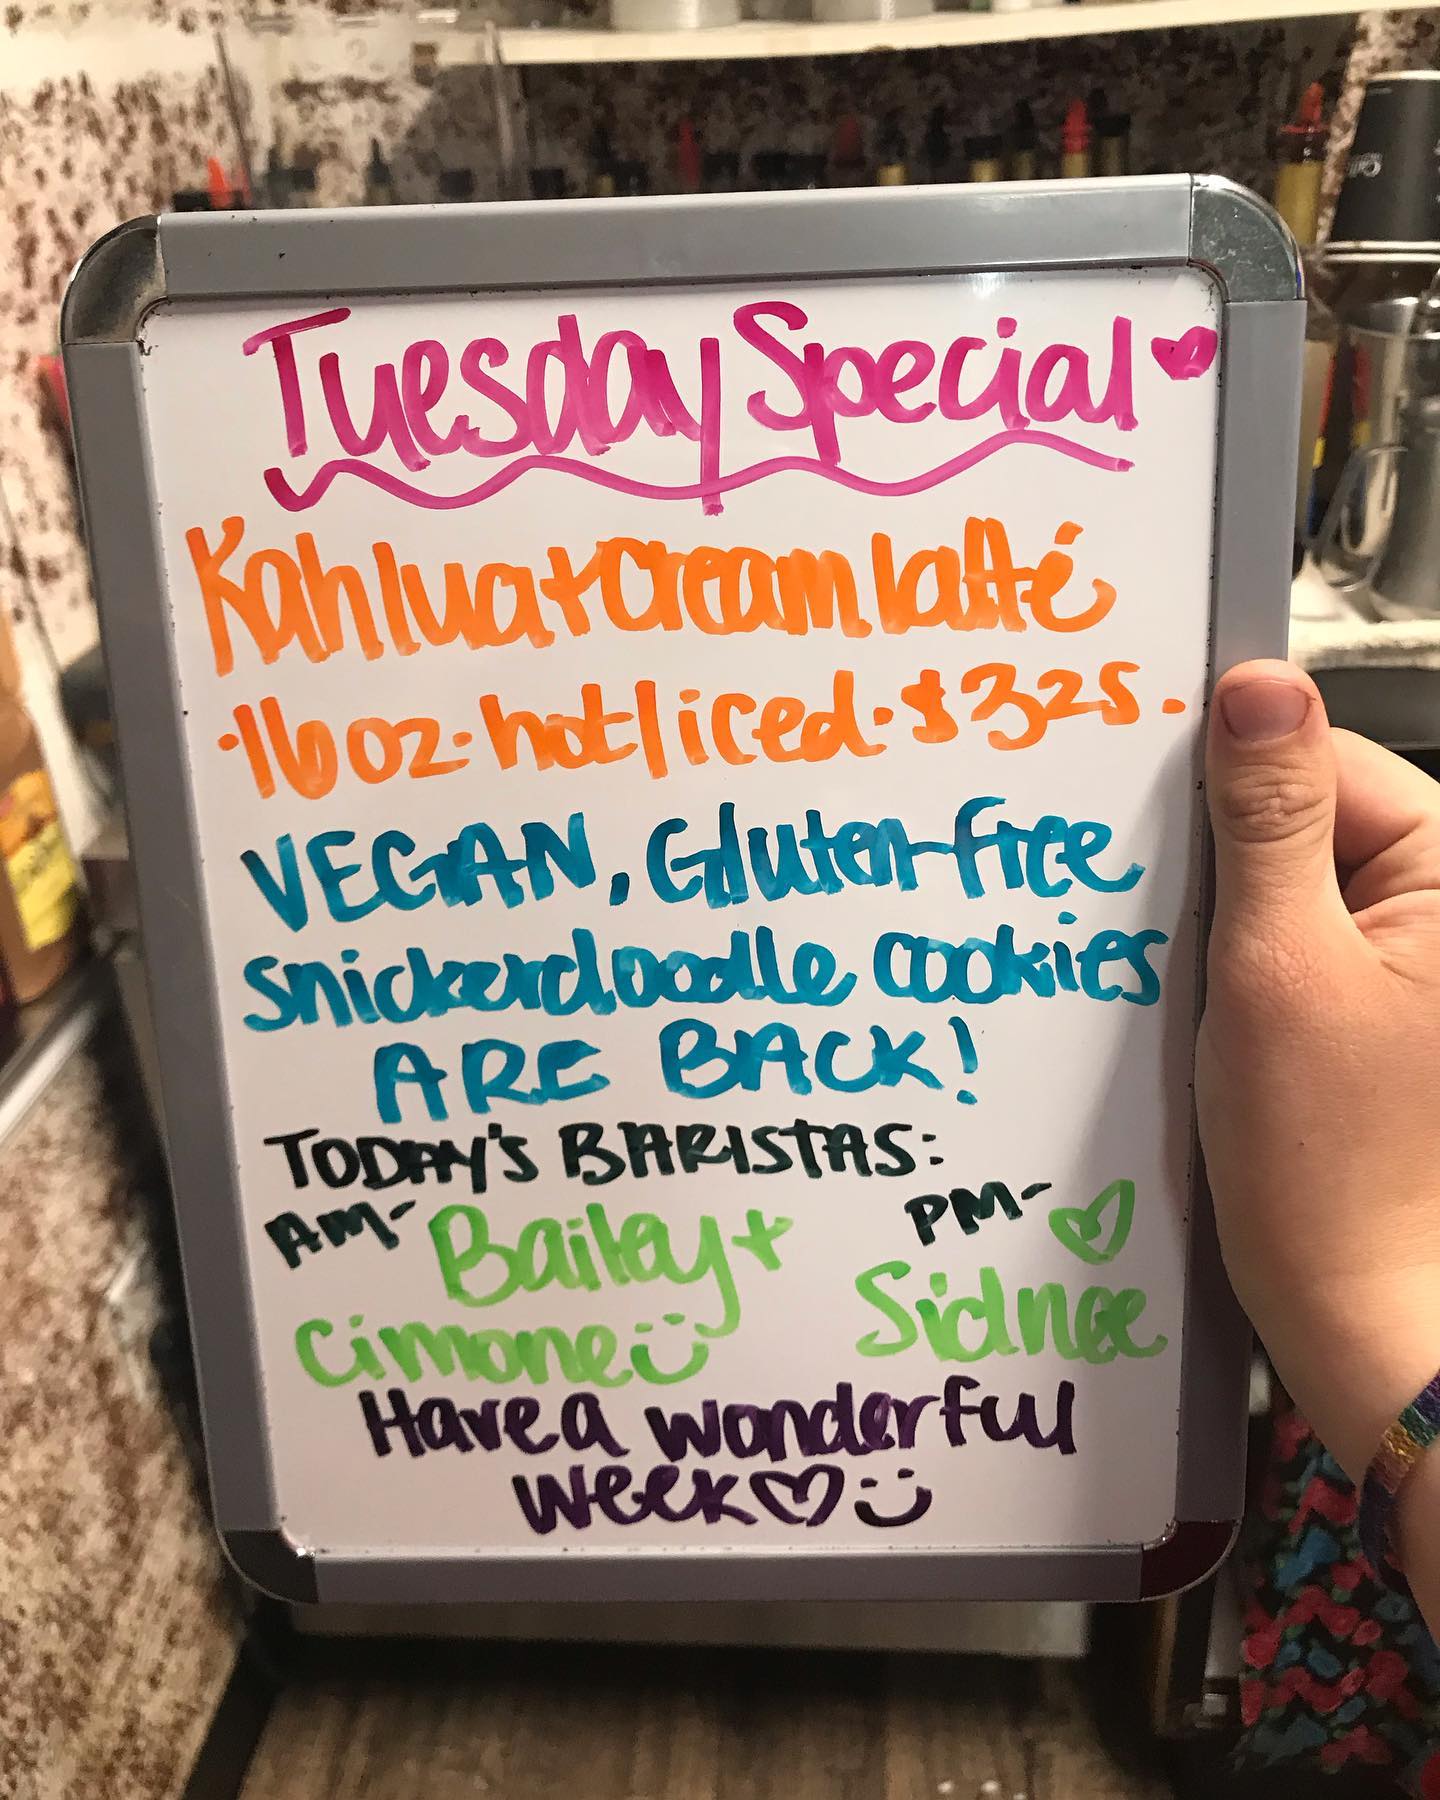 Tuesday Special
Kahlua + Cream latté
·16oz·hot/iced·$325·
VEGAN, Gluten-free
snickerdoodle cookies
ARE BACK!
TODAY'S BARISTAS:
AM- Bailey + PM-
Cimone Sidnee
Have a wonderful
week